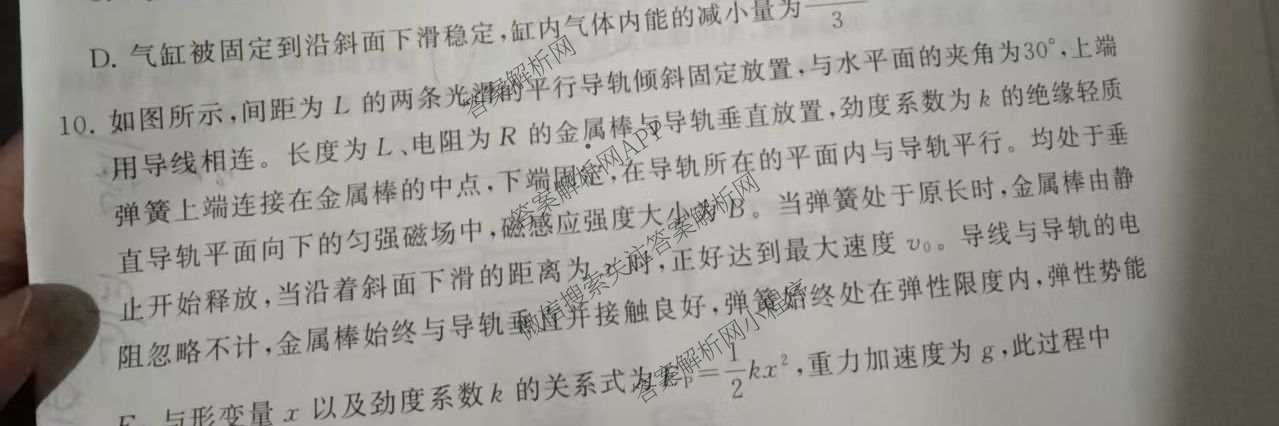 D. 气缸被固定到沿斜面下滑稳定,缸内气体内能的减小量为
3
10. 如图所示,间距为 L 的两条光滑的平行导轨倾斜固定放置,与水平面的夹角为30°,上端
用导线相连。长度为 L、电阻为 R 的金属棒与导轨垂直放置,劲度系数为 k 的绝缘轻质
弹簧上端连接在金属棒的中点,下端固定,在导轨所在的平面内与导轨平行。均处于垂
直导轨平面向下的匀强磁场中,磁感应强度大小为 B。当弹簧处于原长时,金属棒由静
止开始释放,当沿着斜面下滑的距离为 x 时,正好达到最大速度 v₀。导线与导轨的电
阻忽略不计,金属棒始终与导轨垂直并接触良好,弹簧始终处在弹性限度内,弹性势能
与形变量 x 以及劲度系数 k 的关系式为 Eₚ=1/2kx²,重力加速度为 g,此过程中
答案解析网
答案解析网APP
微信搜索关注答案解析网
答案解析网小程序